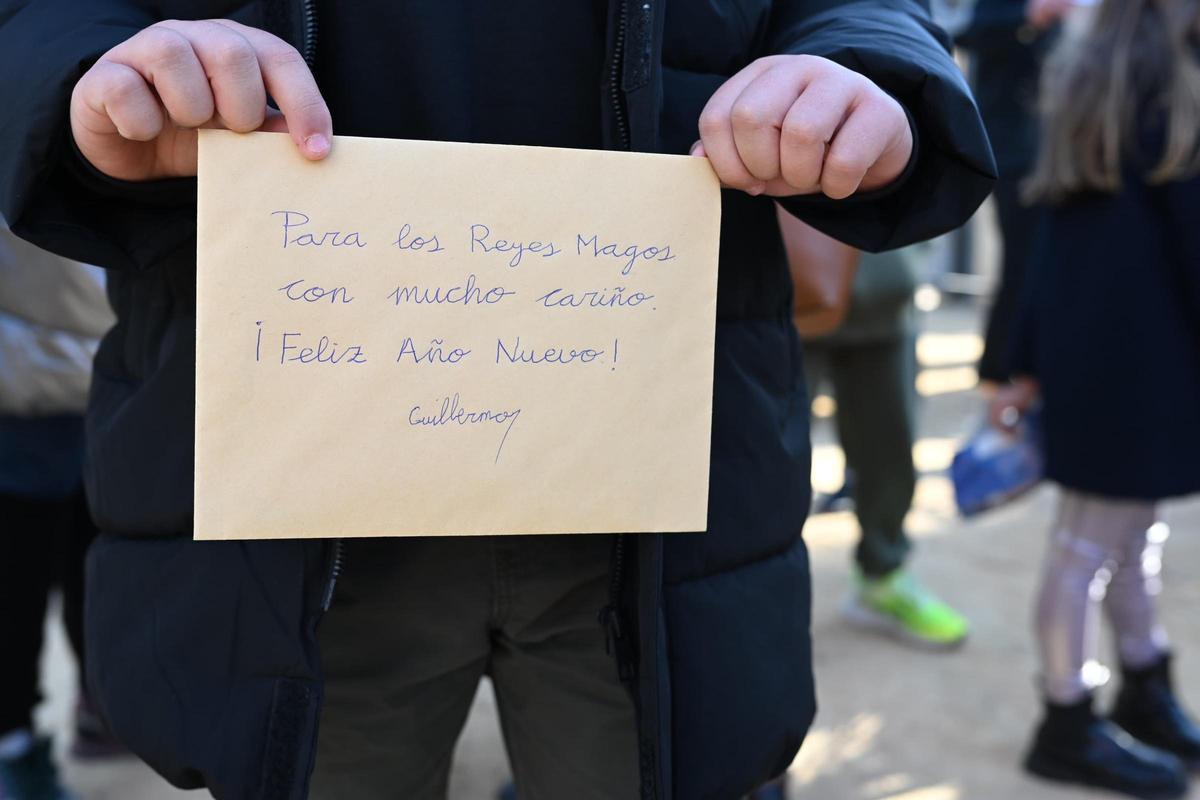 Para los Reyes Magos
con mucho cariño.
¡Feliz Año Nuevo!
Guillermo